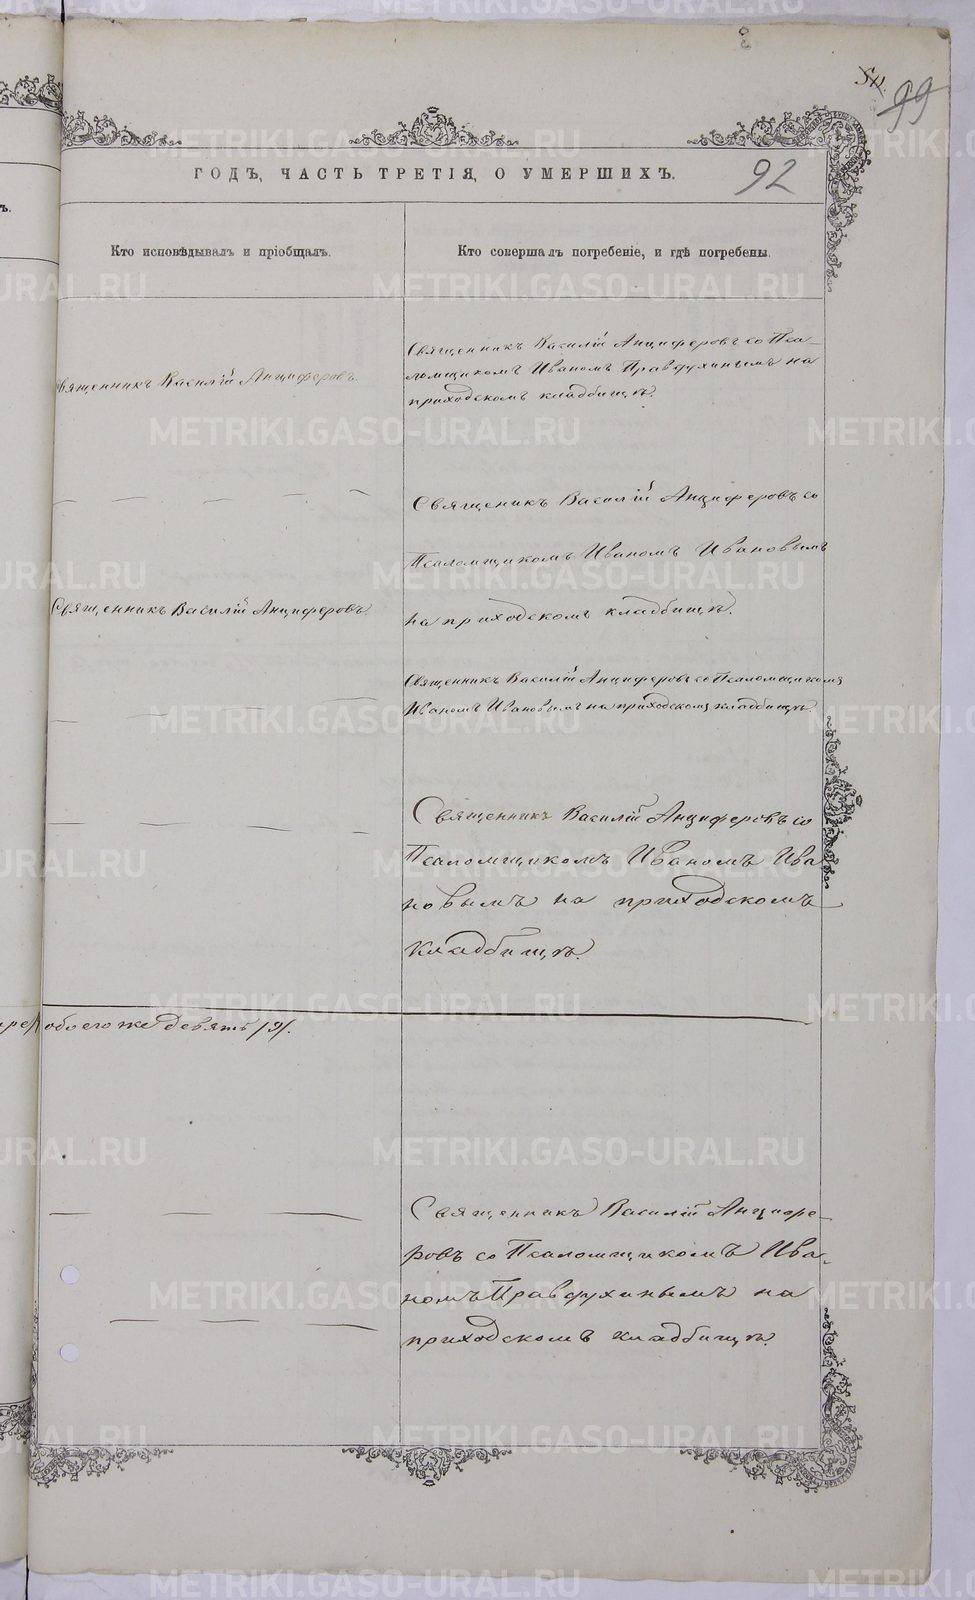 99
92
ГОДЪ, ЧАСТЬ ТРЕТІЯ, О УМЕРШИХЪ.
Кто исповѣдывалъ и пріобщалъ.
Кто совершалъ погребеніе, и гдѣ погребены.
Священникъ Василій Анциферовъ.
Священникъ Василій Анциферовъ со Пса-
ломщикомъ Иваномъ Правдухинымъ на
приходскомъ кладбищѣ.
Священикъ Василій Анциферовъ со
Псаломщикомъ Иваномъ Ивановымъ
на приходскомъ кладбищѣ.
Священникъ Василій Анциферовъ.
Священникъ Василій Анциферовъ со Псаломщикомъ
Иваномъ Ивановымъ на приходскомъ кладбищѣ.
Священникъ Василій Анциферовъ со
Псаломщикомъ Иваномъ Ива
новымъ на приходскомъ
кладбищѣ.
обоего же девять /9/.
Священникъ Василій Анцифе-
ровъ со Псаломщикомъ Ива-
номъ Правдухинымъ на
приходскомъ кладбищѣ.
METRIKI.GASO-URAL.RU